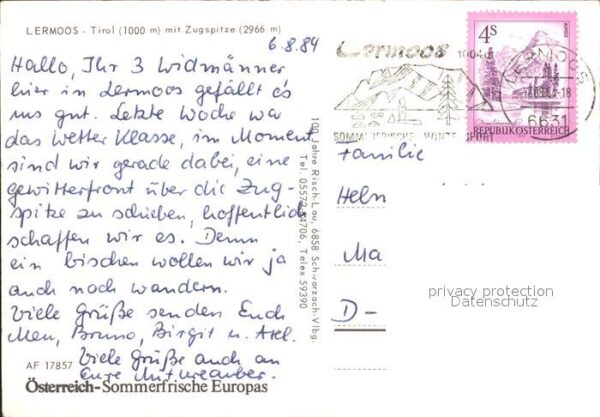 LERMOOS - Tirol (1000 m) mit Zugspitze (2966 m)
6.8.84
Hallo, Ihr 3 Widmänner
hier in Lermoos gefällt es
uns gut. Letzte Woche war
das Wetter Klasse, im Moment
sind wir gerade dabei, eine
Gewitterfront über die Zug-
spitze zu schieben, hoffentlich
schaffen wir es. Denn
ein bischen wollen wir ja
auch noch wandern.
Viele Grüße senden Euch
Bruno, Birgit u. Axel.
Viele Grüße auch an
Eure Miturlauber.
AF 17857
Österreich-Sommerfrische Europas
100 Jahre Risch-Lau, 6858 Schwarzach-Vlbg.
Tel. 05572-, Telex 59390
Lermoos
SOMMERFRISCHE WINTERSPORT
LERMOOS
6631
4S
REPUBLIK ÖSTERREICH
Familie
Helm
Ma
D-
privacy protection
Datenschutz